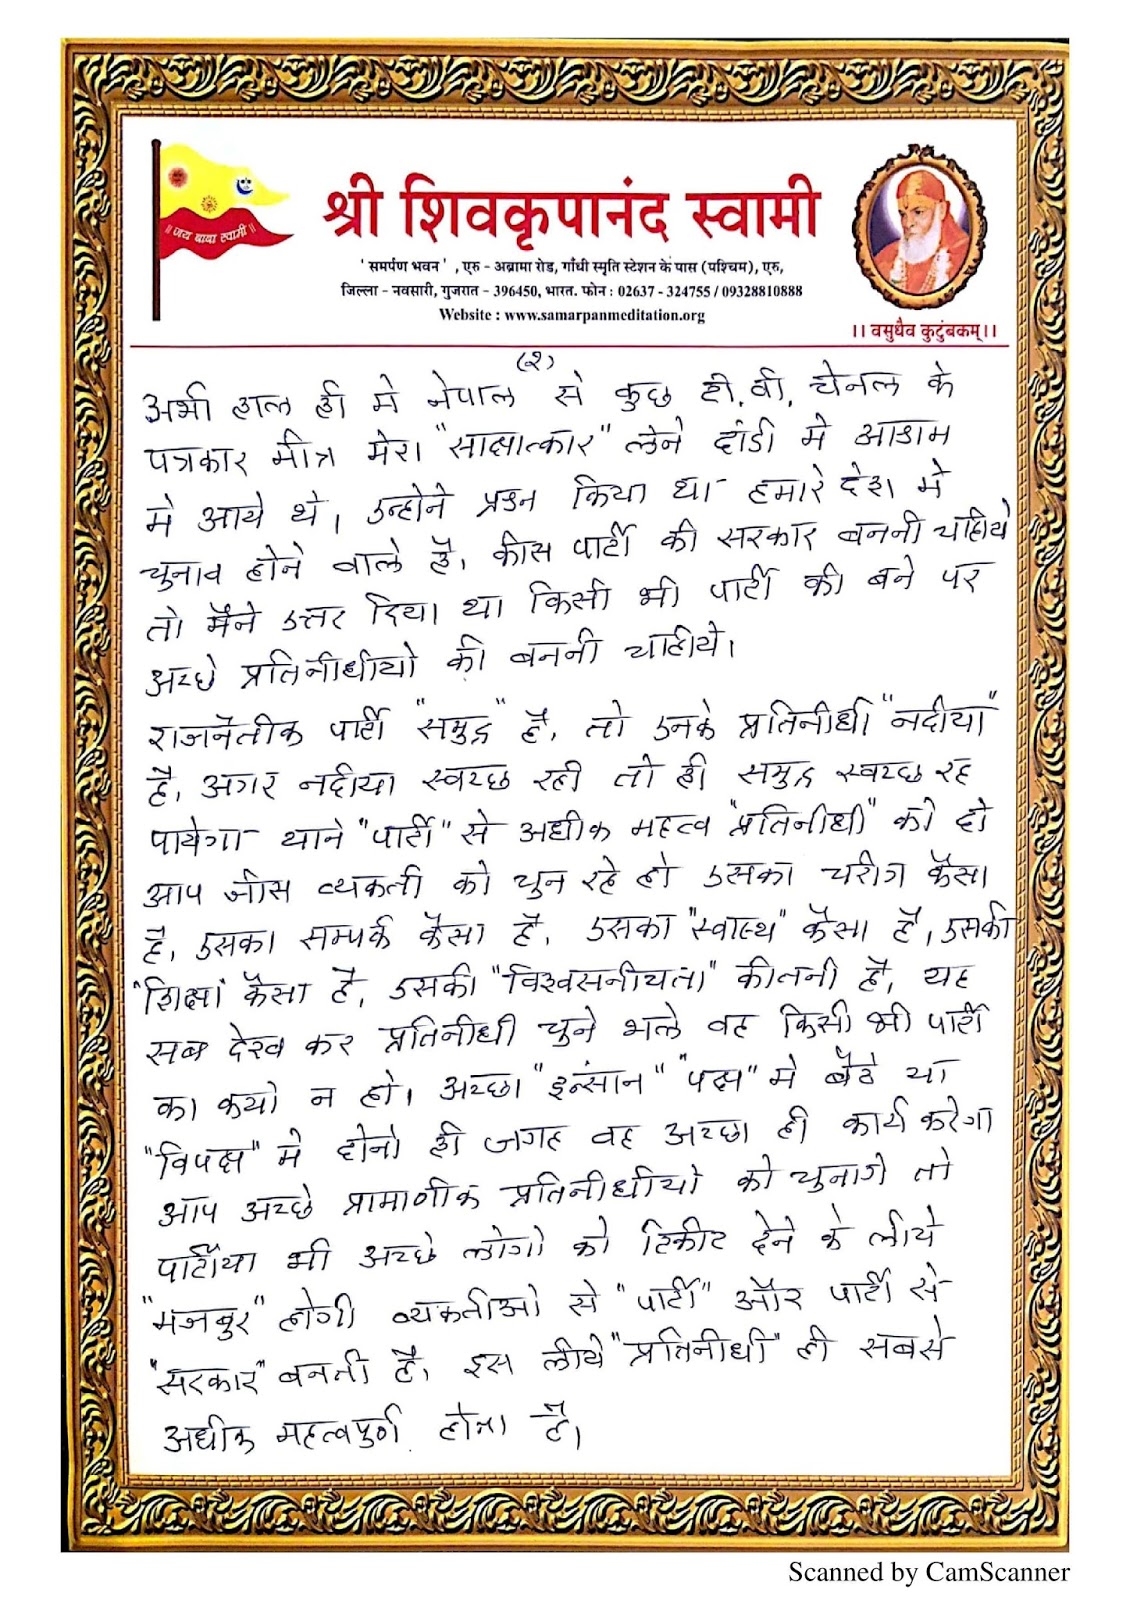 ।। जय बाबा स्वामी ।।
श्री शिवकृपानंद स्वामी
' समर्पण भवन ' , एरु - अब्रामा रोड, गाँधी स्मृति स्टेशन के पास (पश्चिम), एरु,
जिल्ला - नवसारी, गुजरात - 396450, भारत. फोन : 02637 - 324755 / 09328810888
Website : www.samarpanmeditation.org
।। वसुधैव कुटुंबकम् ।।
(२)
अभी हाल ही मे नेपाल से कुछ टी.वी. चेनल के
पत्रकार मीत्र मेरा "साक्षात्कार" लेने दांडी मे आश्रम
मे आये थे। उन्होने प्रश्न किया था हमारे देश मे
चुनाव होने वाले है, कीस पार्टी की सरकार बननी चाहीये
तो मैने उत्तर दिया था किसी भी पार्टी की बने पर
अच्छे प्रतिनीधीयो की बननी चाहीये।
राजनैतीक पार्टी "समुद्र" है, तो उनके प्रतिनीधी "नदीया"
है, अगर नदीया स्वच्छ रही तो ही समुद्र स्वच्छ रह
पायेगा याने "पार्टी" से अधीक महत्व "प्रतिनीधी" को दो
आप जीस व्यकती को चुन रहे हो उसका चरीत्र कैसा
है, उसका सम्पर्क कैसा है, उसका "स्वास्थ" कैसा है, उसकी
"शिक्षा" कैसा है, उसकी "विश्वसनीयता" कीतनी है, यह
सब देख कर प्रतिनीधी चुने भले वह किसी भी पार्टी
का कयो न हो। अच्छा "इन्सान" "पक्ष" मे बैठे या
"विपक्ष" मे दोनो ही जगह वह अच्छा ही कार्य करेगा
आप अच्छे प्रामाणीक प्रतिनीधीयो को चुनागे तो
पार्टीया भी अच्छे लोगो को टिकीट देने के लीये
"मजबुर" होगी व्यकतीओ से "पार्टी" और पार्टी से
"सरकार" बनती है, इस लीये "प्रतिनीधी" ही सबसे
अधीक महत्वपुर्ण होता है।
Scanned by CamScanner